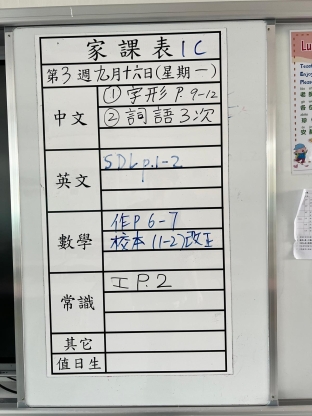 家課表 1C
第3週九月十六日(星期一)
中文
① 字形 P. 9-12
② 詞語 3次
英文
SDL p.1-2
數學
作P 6-7
校本 (1-2)改正
常識
工 P. 2
其它
值日生